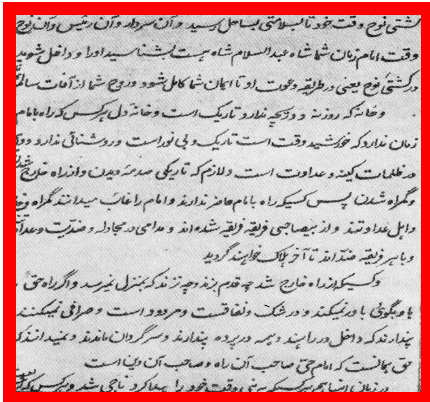 کشتی نوح وقت خود تا بسلامتی بساحل رسید و آن سردار و آن رئیس و آن نوح
وقت امام زمان شما شاه عبدالسلام شاه هست بشناسید او را و داخل شوید
در کشتی نوح یعنی در طریقه و دعوت او تا ایمان شما کامل شود و روح شما از آفات سالم
و خانه که روزنه و دریچه ندارد تاریک است و خانه دل هر کس که راه بامام
زمان ندارد که خورشید وقت است تاریک و بی نور است و روشنائی ندارد و
در ظلمات کینه و عداوت است و لازم که تاریکی صدمه دیدن و از راه خارج شدن
و گمراه شدن پس کسیکه راه بامام حاضر ندارند و امام را غایب میدانند گمراه
و اهل عداوتند و از بیصاحبی فرقه فرقه شده‌اند و مدامی در مجادله و ضدیت و
و با هر فرقه ضداند تا آخر هلاک خواهند گردید
و کسیکه از راه خارج شد چه قدم زند و چه نزند که بمنزل نمیرسد و اگر راه حق
باو بگوئی باور نمیکند و در شک و نفاقست و مردود است و صرافی نمیکنند
پندارند که داخل در راهند و همه در پرده پندارند و سرگردان ماندند و نمیدانند که
حق بجانب است که امام حق صاحب آن راه و صاحب آن دین است
در زمان هر کسیکه نبی وقت خود را پیدا کرد ناجی شد و هر کس که